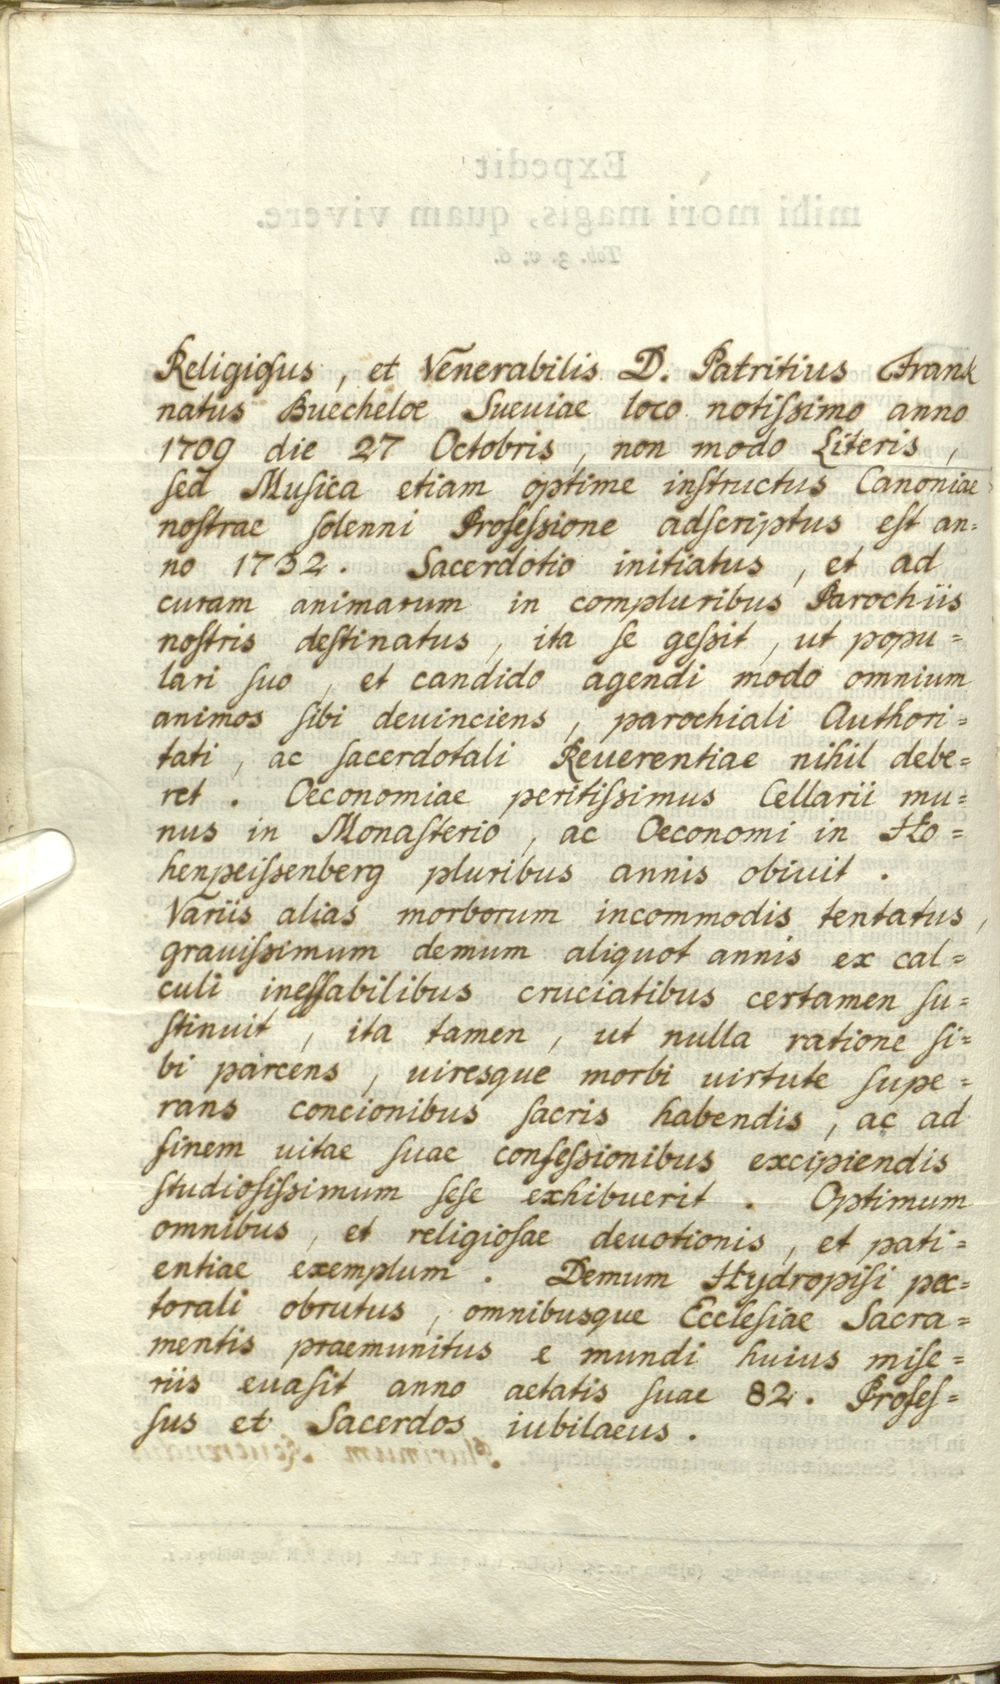 Religiosus, et Venerabilis D. Patritius Frank
natus Buecheloe Sueuiae loco notissimo anno
1709 die 27 Octobris, non modo Literis,
sed Musica etiam optime instructus Canoniae
nostrae solenni Professione adscriptus est an=
no 1732. Sacerdotio initiatus, et ad
curam animarum in compluribus Parochiis
nostris destinatus, ita se gessit, ut popu=
lari suo, et candido agendi modo omnium
animos sibi deuinciens, parochiali Authori=
tati, ac sacerdotali Reuerentiae nihil debe=
ret. Oeconomiae peritissimus Cellarii mu=
nus in Monasterio, ac Oeconomi in Ho=
henpeissenberg pluribus annis obiuit.
Variis alias morborum incommodis tentatus,
grauissimum demum aliquot annis ex cal=
culi ineffabilibus cruciatibus certamen su=
stinuit, ita tamen, ut nulla ratione si=
bi parcens, uiresque morbi uirtute supe=
rans concionibus sacris habendis, ac ad
finem uitae suae confessionibus excipiendis
studiosissimum sese exhibuerit. Optimum
omnibus, et religiosae deuotionis, et pati=
entiae exemplum. Demum Hydropisi pec=
torali obrutus, omnibusque Ecclesiae Sacra=
mentis praemunitus e mundi huius mise=
riis euasit anno aetatis suae 82. Profes=
sus et Sacerdos iubilaeus.
Expedit
mihi mori magis, quam vivere.
Tob. 3. v. 6.